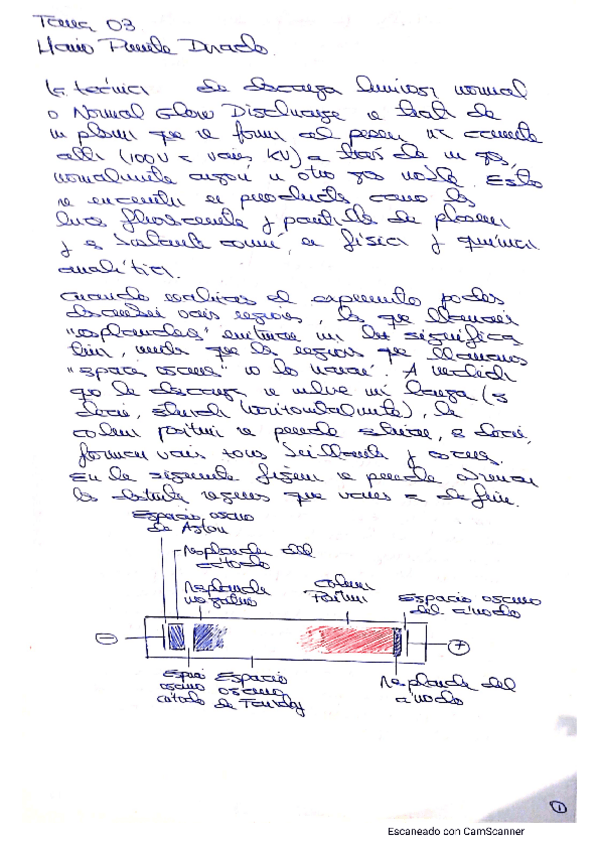 Tarea 03
Mario Pineda Dorado.
La técnica de descarga luminosa normal
o Normal Glow Discharge se trata de
un plasma que se forma al pasar una corriente
alta (100V a varios KV) a través de un gas,
normalmente argón u otro gas noble. Esto
se encuentra en productos como las
luces fluorescente y pantallas de plasma
y es bastante común en física y química
analítica.
Cuando realizas el experimento podes
describir varias regiones, las que llamamos
"resplandores" emiten una luz significa
tiva, mientras que las regiones que llamamos
"espacios oscuros" no lo hacen. A medida
que la descarga se vuelve más larga (es
decir, estirada horizontalmente), la
columna positiva se puede estriar, es decir,
forman varias zonas brillantes y oscuras.
En la siguiente figura se puede observar
las distintas regiones que vamos a definir.
Espacio oscuro
de Aston
Resplandor del
cátodo
Resplandor
negativo
Columna
Positiva
Espacio oscuro
del ánodo
−
+
Espacio
oscuro
cátodo
Espacio
oscuro
de Faraday
Resplandor del
ánodo
1
Escaneado con CamScanner